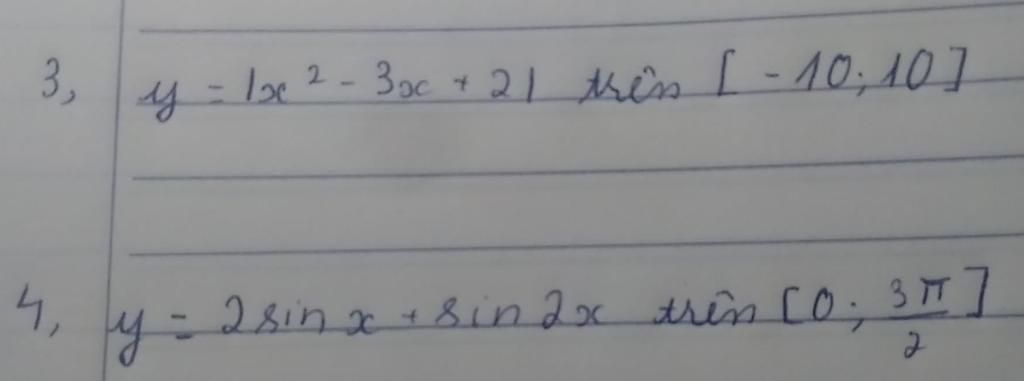 3, y = |x² - 3x + 2| trên [-10; 10]
4, y = 2sinx + sin2x trên [0; 3π/2]